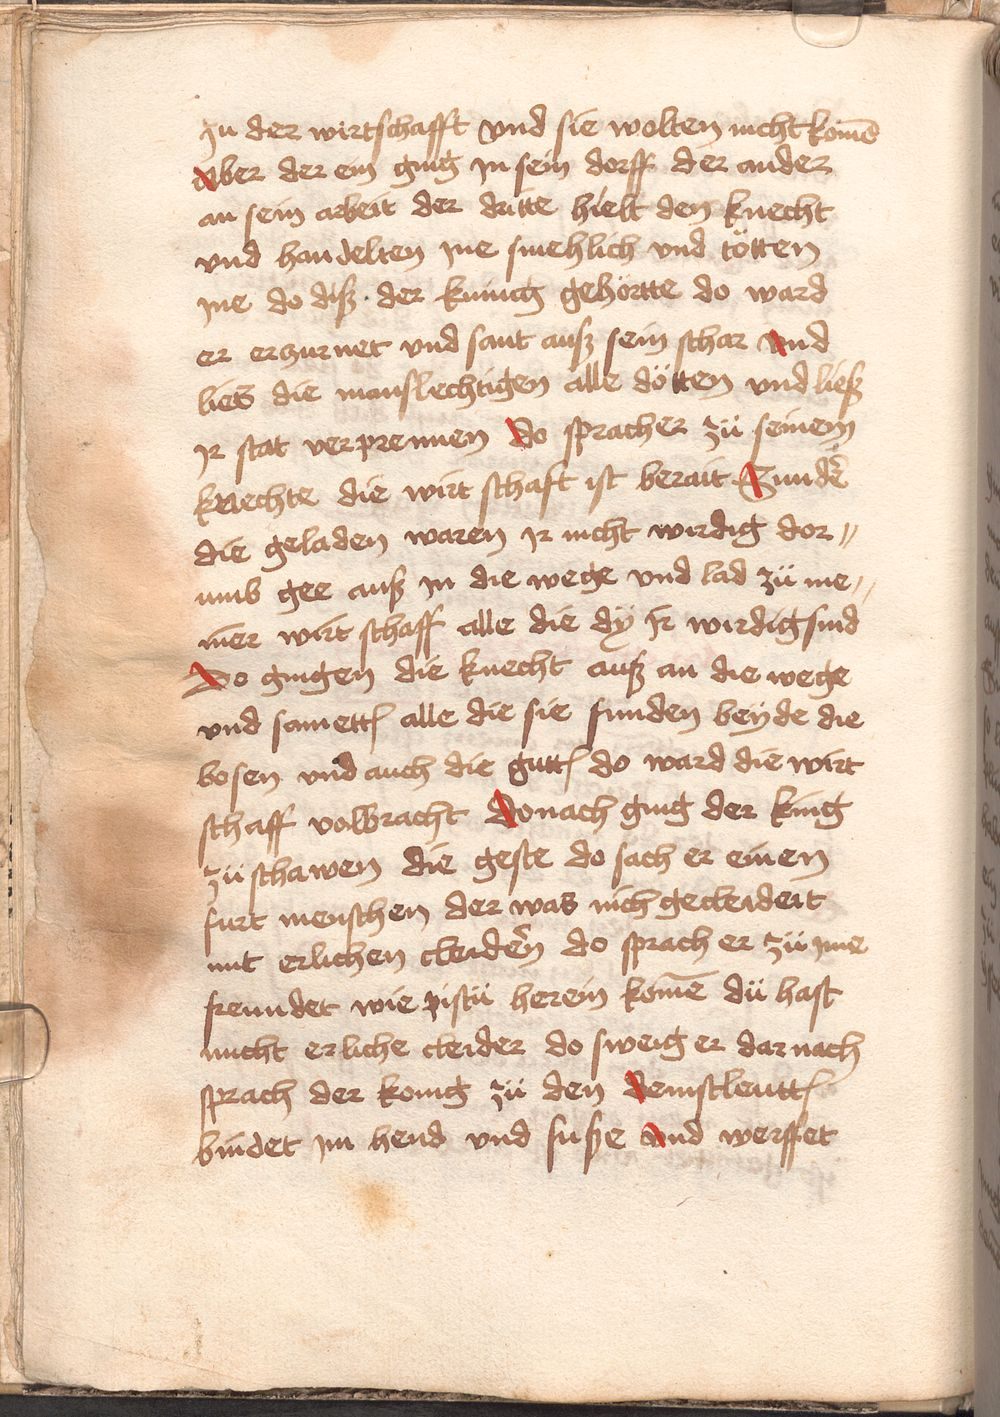 zu der wirtschafft vnd sie wolten nicht komē
Aber der ein ging in sein dorff der ander
an sein arbeit der dritte hielt den knecht
vnd handelten jne smehlich vnd tötten
jne do disz der kunig gehörtte do ward
er erzurnet vnd sant ausz sein schar vnd
lies die manslechtigen alle dötten vnd liesz
jr stat verprennen Do sprach er zü seinem
knechte die wirtschaft ist berait Sundē
die geladen waren jr nicht wirdig dor //
umb gee ausz jn die wege vnd lad zü me //
iner wirtschaff alle die dÿ jr wirdig sind
Do gingen die knecht ausz an die wege
vnd samettē alle die sie funden beÿde die
bosen vnd auch die guttē do ward die wirt
schaff volbracht Donach ging der kinig
zü schawen die geste do sach er einen
furt menschen der was nich gecleideit
mit erlichen cleidern do sprach er zü jme
freundet wie pistü herein komē dü hast
nucht erliche cleider do sweig er darnach
sprach der konig zü den Deinstleuttē
bindet jm hend vnd fusze vnd werffet